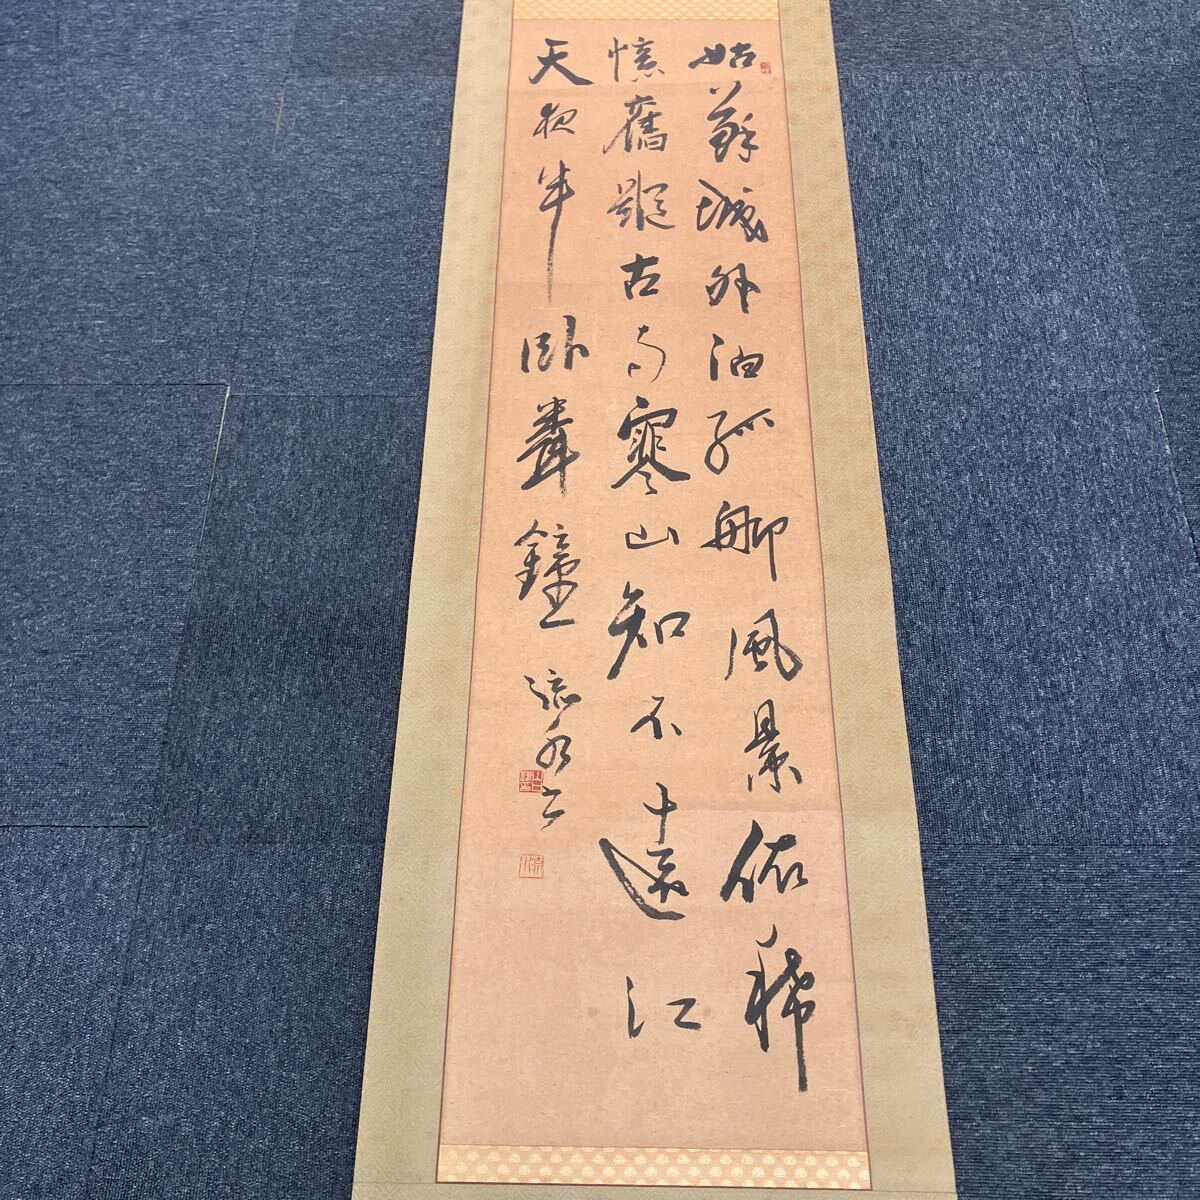 姑蘇城外泊孤風景依稀
憶舊蹤古寺寒山知不遠江
天夜半臥鐘